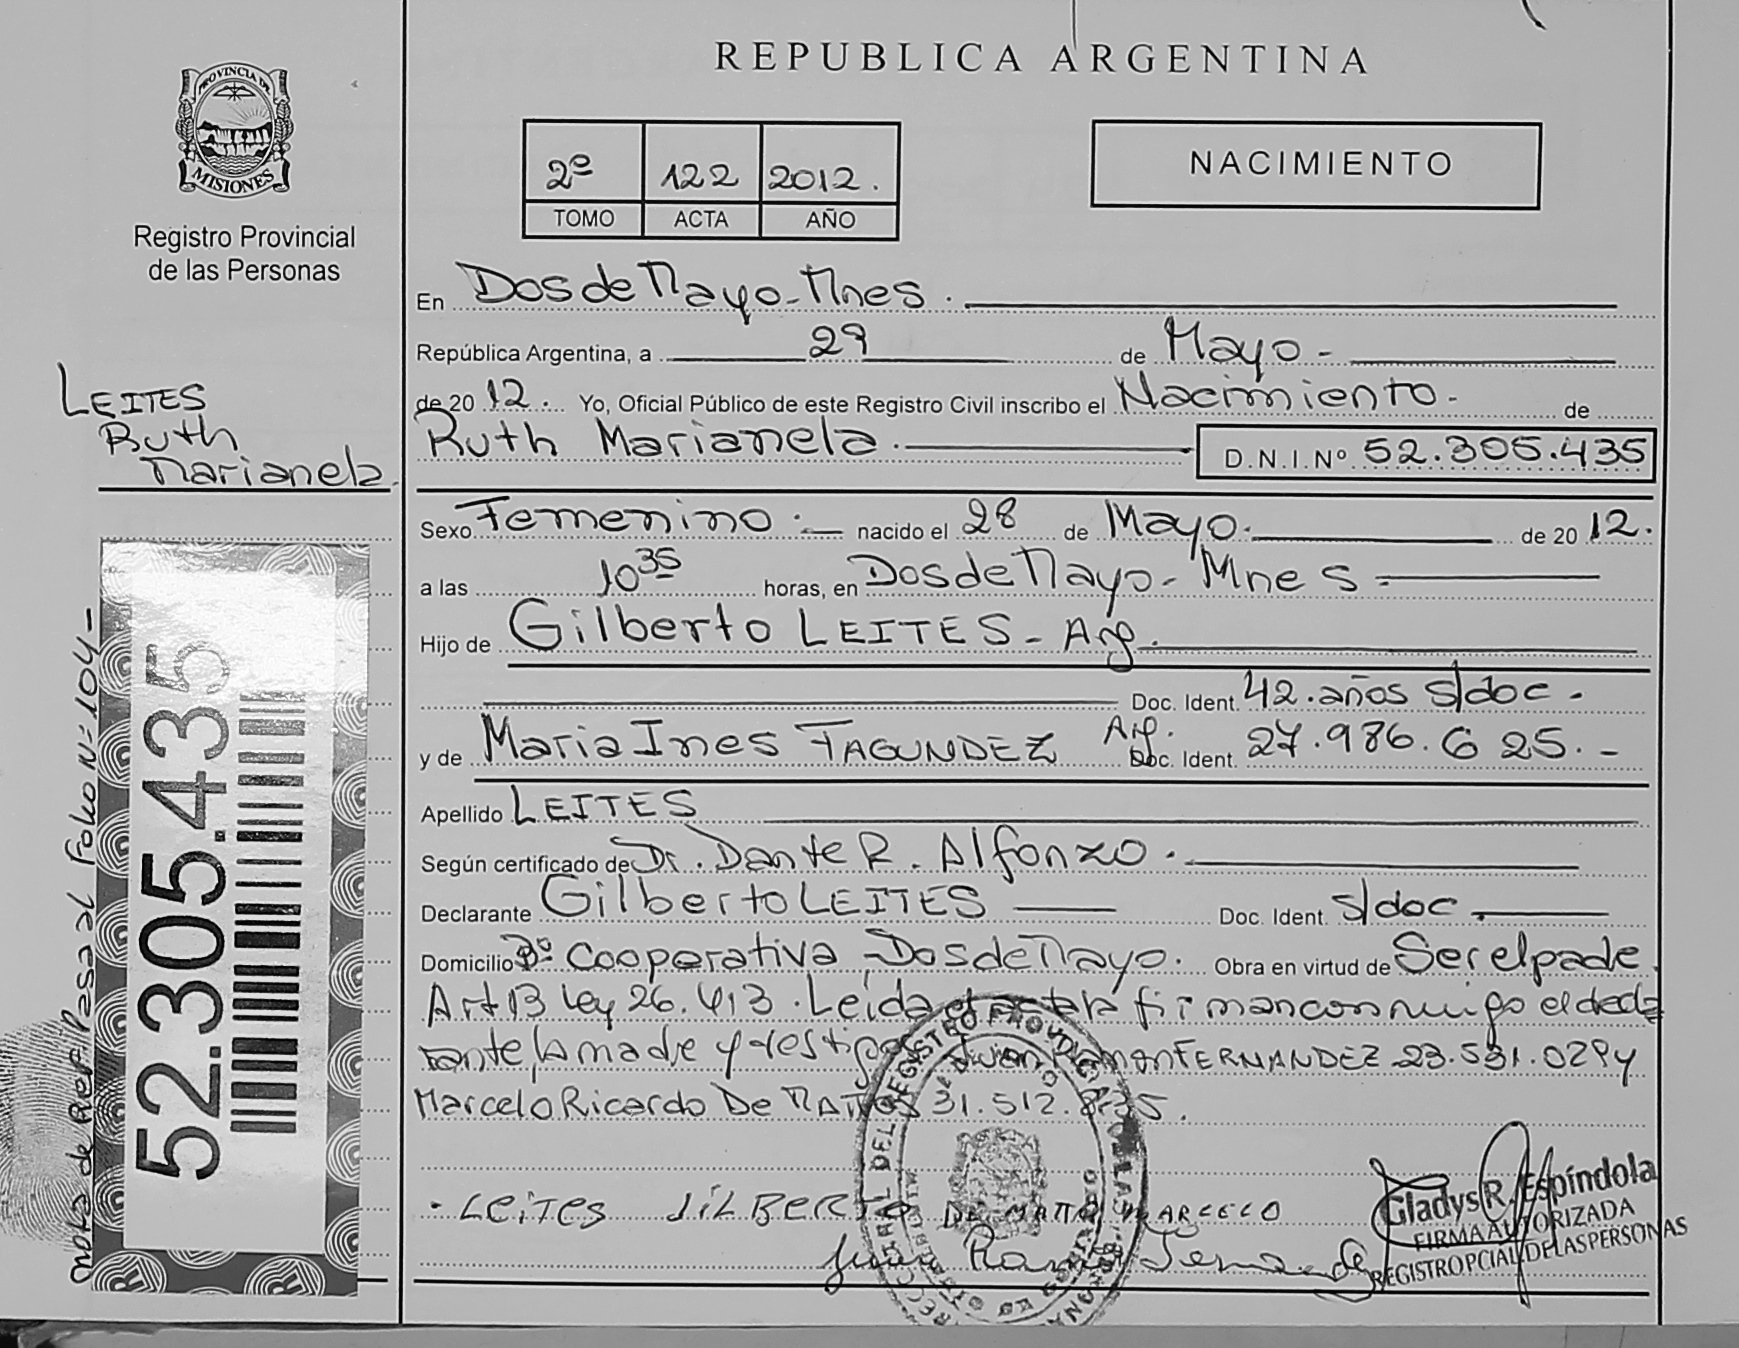 REPUBLICA ARGENTINA
PROVINCIA DE
MISIONES
Registro Provincial
de las Personas
2º 122 2012.
TOMO ACTA AÑO
NACIMIENTO
En Dos de Mayo - Mnes.
República Argentina, a 29 de Mayo -
de 20 12. Yo, Oficial Público de este Registro Civil inscribo el Nacimiento. de
Ruth Marianela. D.N.I. Nº 52.305.435
LEITES
Ruth
Marianela.
Sexo Femenino. nacido el 28 de Mayo. de 20 12.
a las 10 35 horas, en Dos de Mayo - Mnes
Hijo de Gilberto LEITES - Arg.
Doc. Ident. 42. años s/doc -
y de Maria Ines FAGUNDEZ Arg. Doc. Ident. 27.986.625. -
Apellido LEITES
Según certificado de Dr. Dante R. Alfonzo.
Declarante Gilberto LEITES Doc. Ident. s/doc.
Domicilio Bº Cooperativa Dos de Mayo. Obra en virtud de Ser el padre.
Art 13 Ley 26.413. Leida el acta la firman conmigo el decla
rante, la madre y testigos Juan Ramon FERNANDEZ 23.531.029 y
Marcelo Ricardo De MATTOS 31.512.
LEITES JILBERTO DE MATTOS MARCELO
Juan Ramon Fernandez
Gladys R. Espíndola
FIRMA AUTORIZADA
REGISTRO PCIAL. DE LAS PERSONAS
52.305.435
nota de Ref. Pasa al Folio Nº 104 -